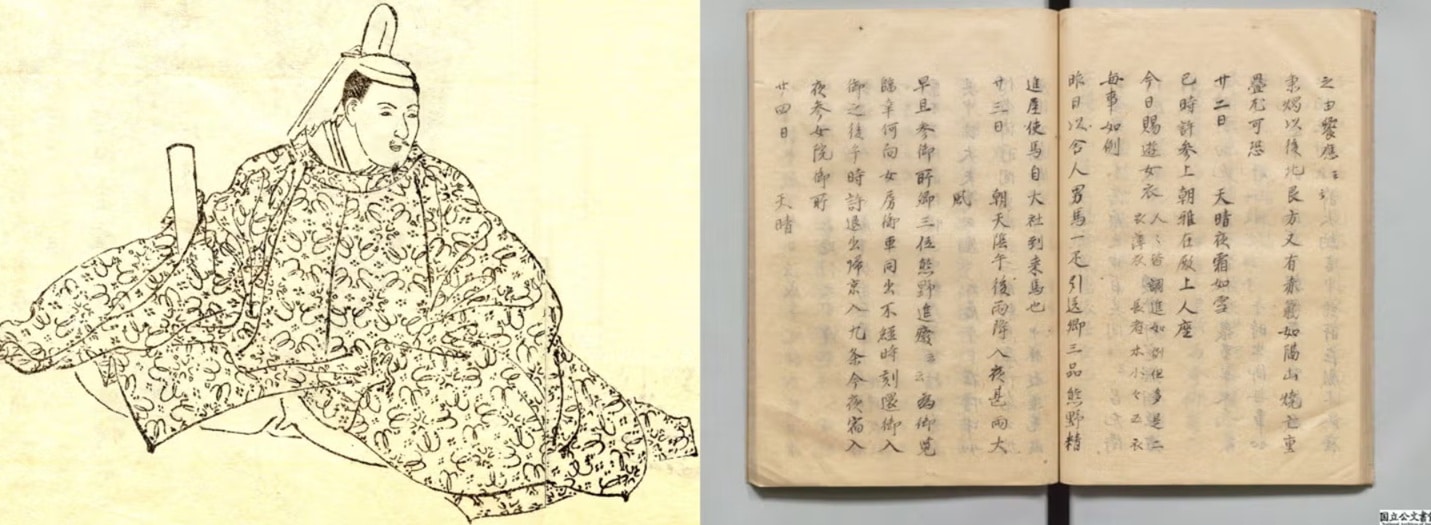 之由饗應云々
秉燭以後北艮方又有赤氣如陽山燒亡重
疊尤可恐
廿二日 天晴夜霜如雪
巳時許参上朝雅在殿上人座
今日賜遊女衣人々皆調進如例但多是二
衣薄衣長者木小々五衣
每事如例
昨日以舍人男馬一疋引送卿三品熊野精
進屋使馬自大社到来馬也
廿三日 朝天陰午後雨降入夜甚雨大
風
早旦参御所卿三位熊野進發云々為御覧
臨幸何向女房衛車同出不経時刻還御入
御之後午時許退出歸京入九条今夜宿入
夜参女院御所
廿四日 天晴
国立公文書